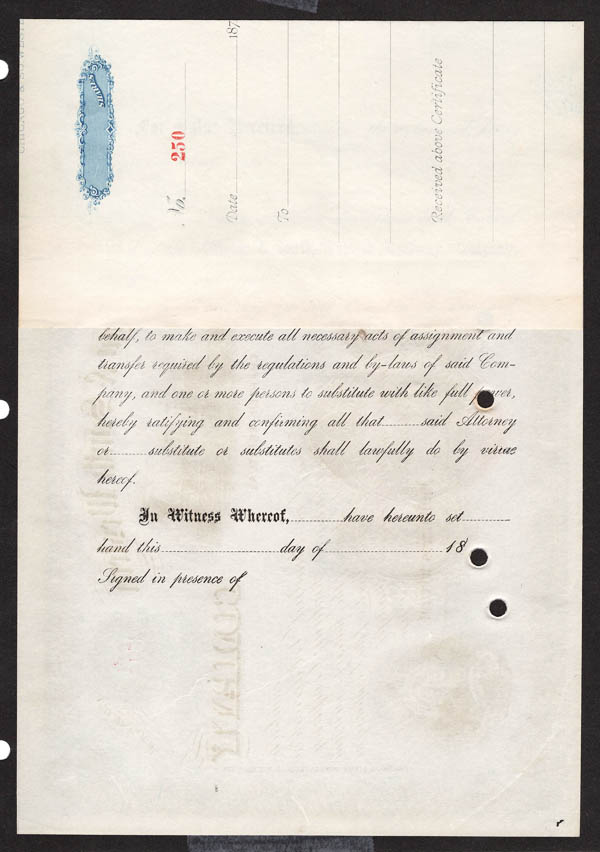 Shares
No. 250
Date 187
To
Received above Certificate
behalf, to make and execute all necessary acts of assignment and
transfer required by the regulations and by-laws of said Com-
pany, and one or more persons to substitute with like full power,
hereby ratifying and confirming all that said Attorney
or substitute or substitutes shall lawfully do by virtue
hereof.
In Witness Whereof, have hereunto set
hand this day of 18
Signed in presence of